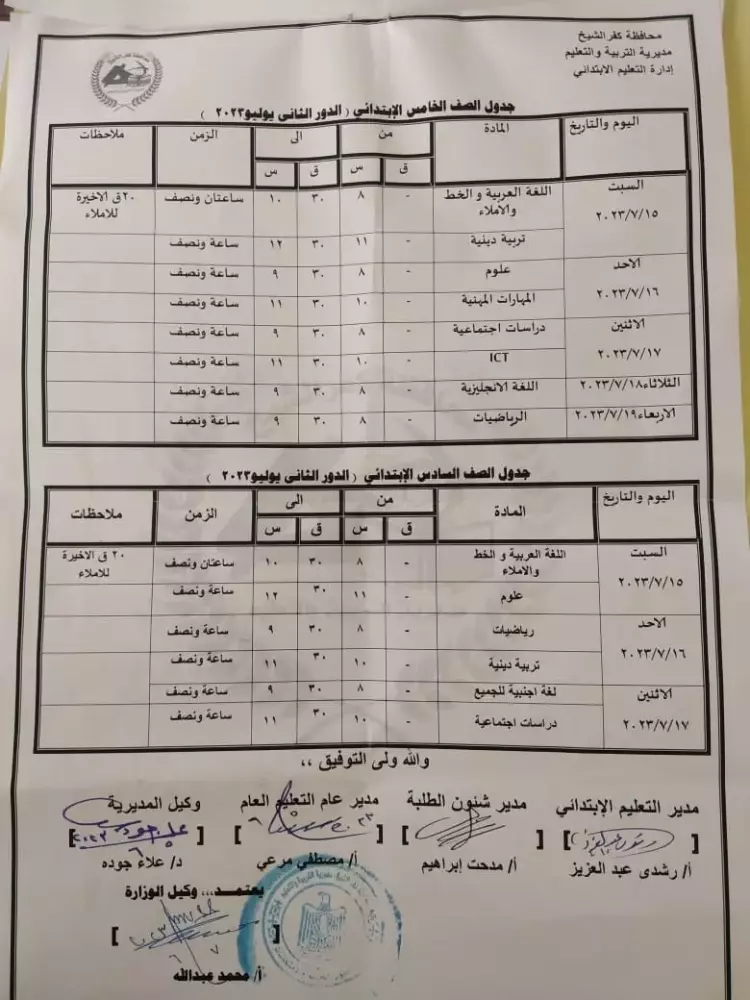 محافظة كفرالشيخ
مديرية التربية والتعليم
إدارة التعليم الابتدائي
جدول الصف الخامس الإبتدائي ( الدور الثانى يوليو٢٠٢٣ )
اليوم والتاريخ المادة من الى الزمن ملاحظات
ق س ق س
السبت ٢٠٢٣/٧/١٥ اللغة العربية و الخط والاملاء - ٨ ٣٠ ١٠ ساعتان ونصف ٢٠ق الاخيرة للاملاء
تربية دينية - ١١ ٣٠ ١٢ ساعة ونصف
الاحد ٢٠٢٣/٧/١٦ علوم - ٨ ٣٠ ٩ ساعة ونصف
المهارات المهنية - ١٠ ٣٠ ١١ ساعة ونصف
الاثنين ٢٠٢٣/٧/١٧ دراسات اجتماعية - ٨ ٣٠ ٩ ساعة ونصف
ICT - ١٠ ٣٠ ١١ ساعة ونصف
الثلاثاء٢٠٢٣/٧/١٨ اللغة الانجليزية - ٨ ٣٠ ٩ ساعة ونصف
الاربعاء٢٠٢٣/٧/١٩ الرياضيات - ٨ ٣٠ ٩ ساعة ونصف
جدول الصف السادس الإبتدائي ( الدور الثانى يوليو٢٠٢٣ )
اليوم والتاريخ المادة من الى الزمن ملاحظات
ق س ق س
السبت ٢٠٢٣/٧/١٥ اللغة العربية و الخط والاملاء - ٨ ٣٠ ١٠ ساعتان ونصف ٢٠ ق الاخيرة للاملاء
علوم - ١١ ٣٠ ١٢ ساعة ونصف
الاحد ٢٠٢٣/٧/١٦ رياضيات - ٨ ٣٠ ٩ ساعة ونصف
تربية دينية - ١٠ ٣٠ ١١ ساعة ونصف
الاثنين ٢٠٢٣/٧/١٧ لغة اجنبية للجميع - ٨ ٣٠ ٩ ساعة ونصف
دراسات اجتماعية - ١٠ ٣٠ ١١ ساعة ونصف
والله ولى التوفيق ،،
مدير التعليم الإبتدائي مدير شئون الطلبة مدير عام التعليم العام وكيل المديرية
[ ] [ ] [ ] [ ]
أ/ رشدى عبد العزيز أ/ مدحت إبراهيم أ/ مصطفي مرعي د/ علاء جوده
يعتمد،،، وكيل الوزارة
[ ]
أ/ محمد عبدالله